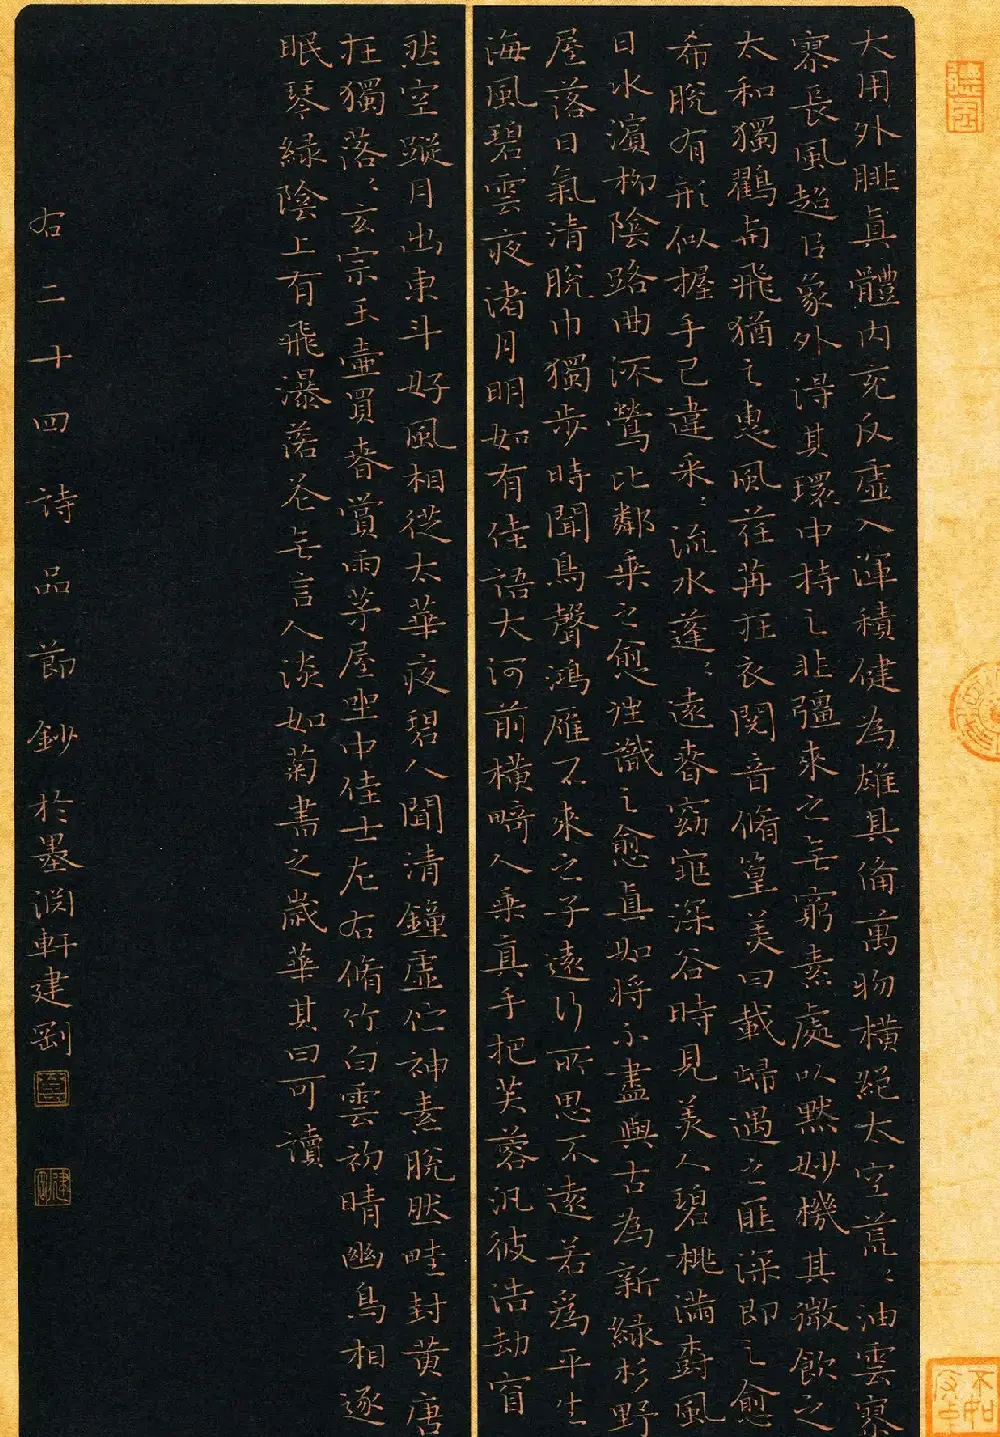 大用外腓真體內充反虛入渾積健為雄具備萬物橫絕太空荒〻油雲寥
寥長風超㠯象外得其環中持之非彊來之無窮素處以默妙機其微飲之
太和獨鶴與飛猶之惠風荏苒在衣閱音脩篁美曰載歸遇之匪深即之愈
希脫有形似握手已違采〻流水蓬〻遠春窈窕深谷時見美人碧桃滿樹風
日水濱柳陰路曲流鶯比鄰乘之愈往識之愈真如將不盡與古為新綠杉野
屋落日氣清脫巾獨步時聞鳥聲鴻雁不來之子遠行所思不遠若為平生
海風碧雲夜渚月明如有佳語大河前橫畸人乘真手把芙蓉汎彼浩劫窅
然空蹤月出東斗好風相從太華夜碧人聞清鐘虛佇神素脫然畦封黃唐
在獨落〻玄宗玉壺買春賞雨茅屋坐中佳士左右脩竹白雲初晴幽鳥相逐
眠琴綠陰上有飛瀑落花無言人淡如菊書之歲華其曰可讀
右二十四詩品節鈔於墨淵軒建剛